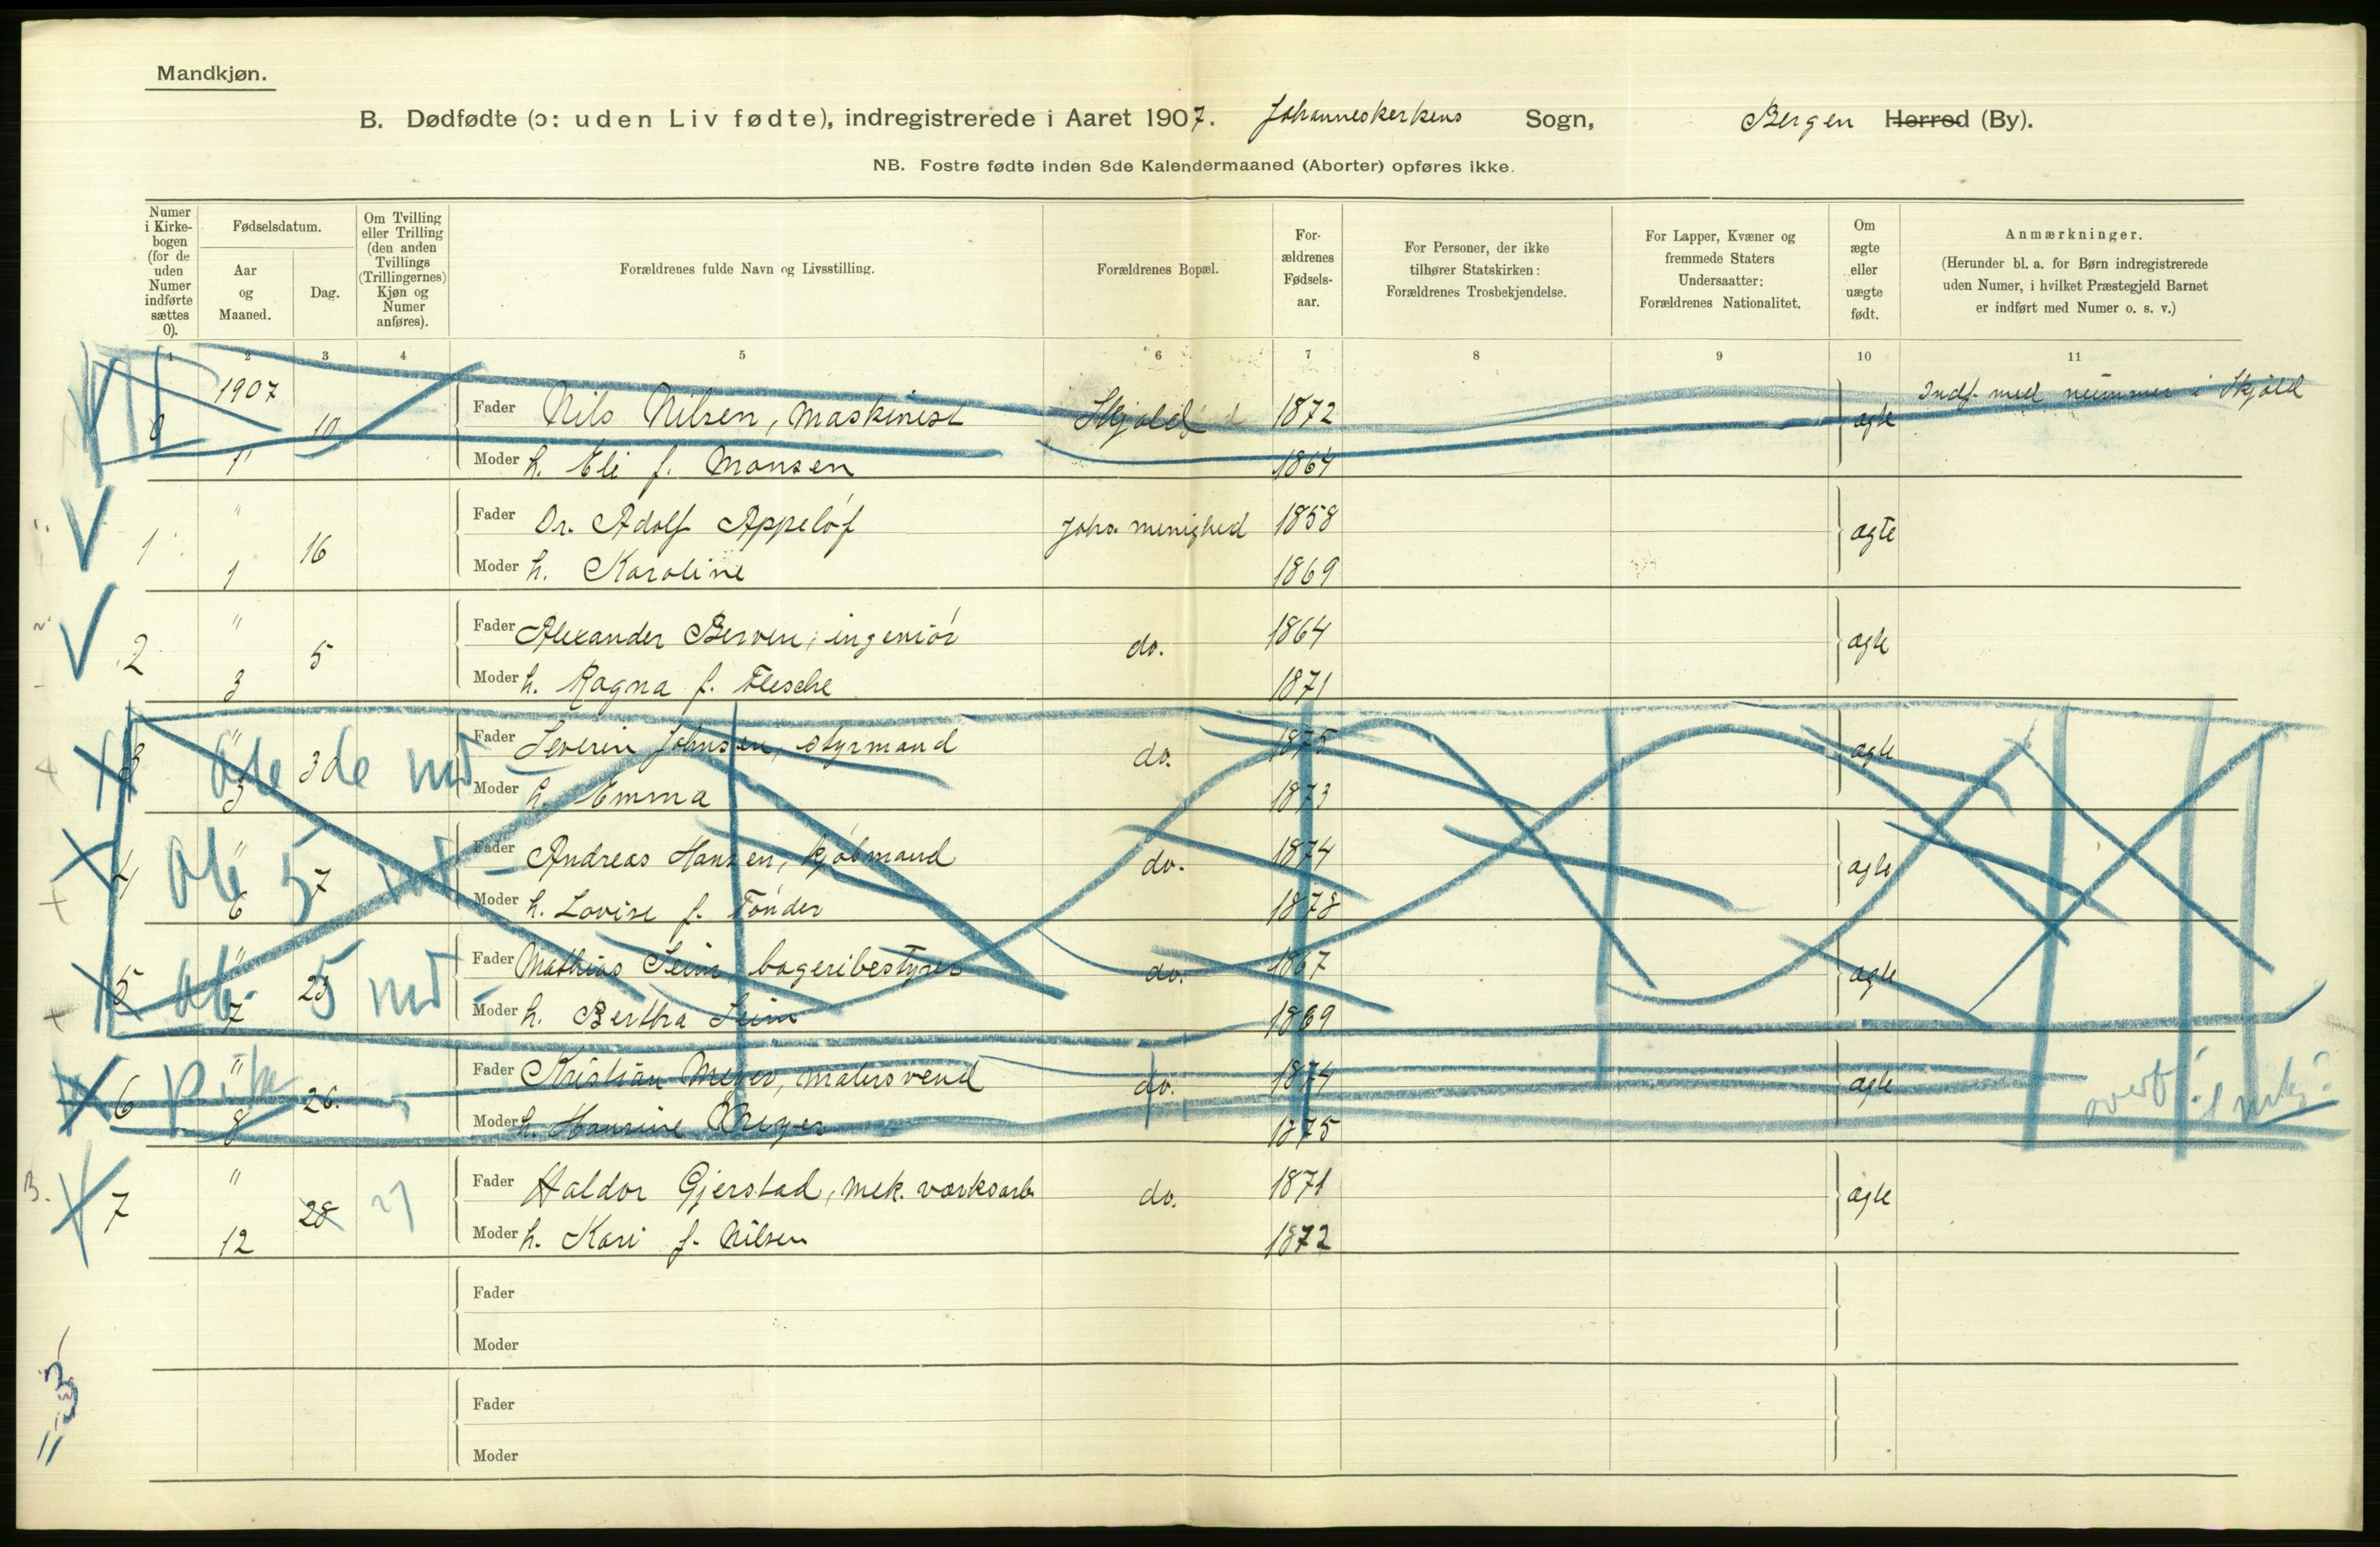 Mandkjøn.
B. Dødfødte (ɔ: uden Liv fødte), indregistrerede i Aaret 1907. Johanneskerkens Sogn, Bergen Herred (By).
NB. Fostre fødte inden 8de Kalendermaaned (Aborter) opføres ikke.
Numer i Kirkebogen (for de uden Numer indførte sættes 0).
Fødselsdatum.
Aar og Maaned.
Dag.
Om Tvilling eller Trilling (den anden Tvillings (Trillingernes) Kjøn og Numer anføres).
Forældrenes fulde Navn og Livsstilling.
Forældrenes Bopæl.
Forældrenes Fødselsaar.
For Personer, der ikke tilhører Statskirken: Forældrenes Trosbekjendelse.
For Lapper, Kvæner og fremmede Staters Undersaatter: Forældrenes Nationalitet.
Om ægte eller uægte født.
Anmærkninger.
(Herunder bl. a. for Børn indregistrerede uden Numer, i hvilket Præstegjeld Barnet er indført med Numer o. s. v.)
1 2 3 4 5 6 7 8 9 10 11
1907 Indf. med nummer i Skjold
0 10 Fader Nils Nilsen, maskinist Skjold 1872 ægte
1 Moder h. Eli f. Monsen 1864
1 " 16 Fader Dr. Adolf Appelöf Johs. menighed 1858 ægte
1 Moder h. Karoline 1869
2 " 5 Fader Alexander Berven, ingeniör do. 1864 ægte
3 Moder h. Ragna f. Flesche 1871
3 " 3 Fader Severin Johnsen, styrmand do. 1875 ægte
3 Moder h. Emma 1873
4 " 7 Fader Andreas Hansen, kjöbmand do. 1874 ægte
6 Moder h. Lovise f. Tönder 1878
5 " 23 Fader Mathias Seim bageribestyrer do. 1867 ægte
7 Moder h. Bertha Seim 1869
6 " 26. Fader Kristian Meyer, malersvend do. 1874 ægte
8 Moder h. Hansine Meyer 1875
7 " 28 27 Fader Haldor Gjerstad, mek. værksarb. do. 1871 ægte
12 Moder h. Kari f. Nilsen 1872
Fader
Moder
Fader
Moder